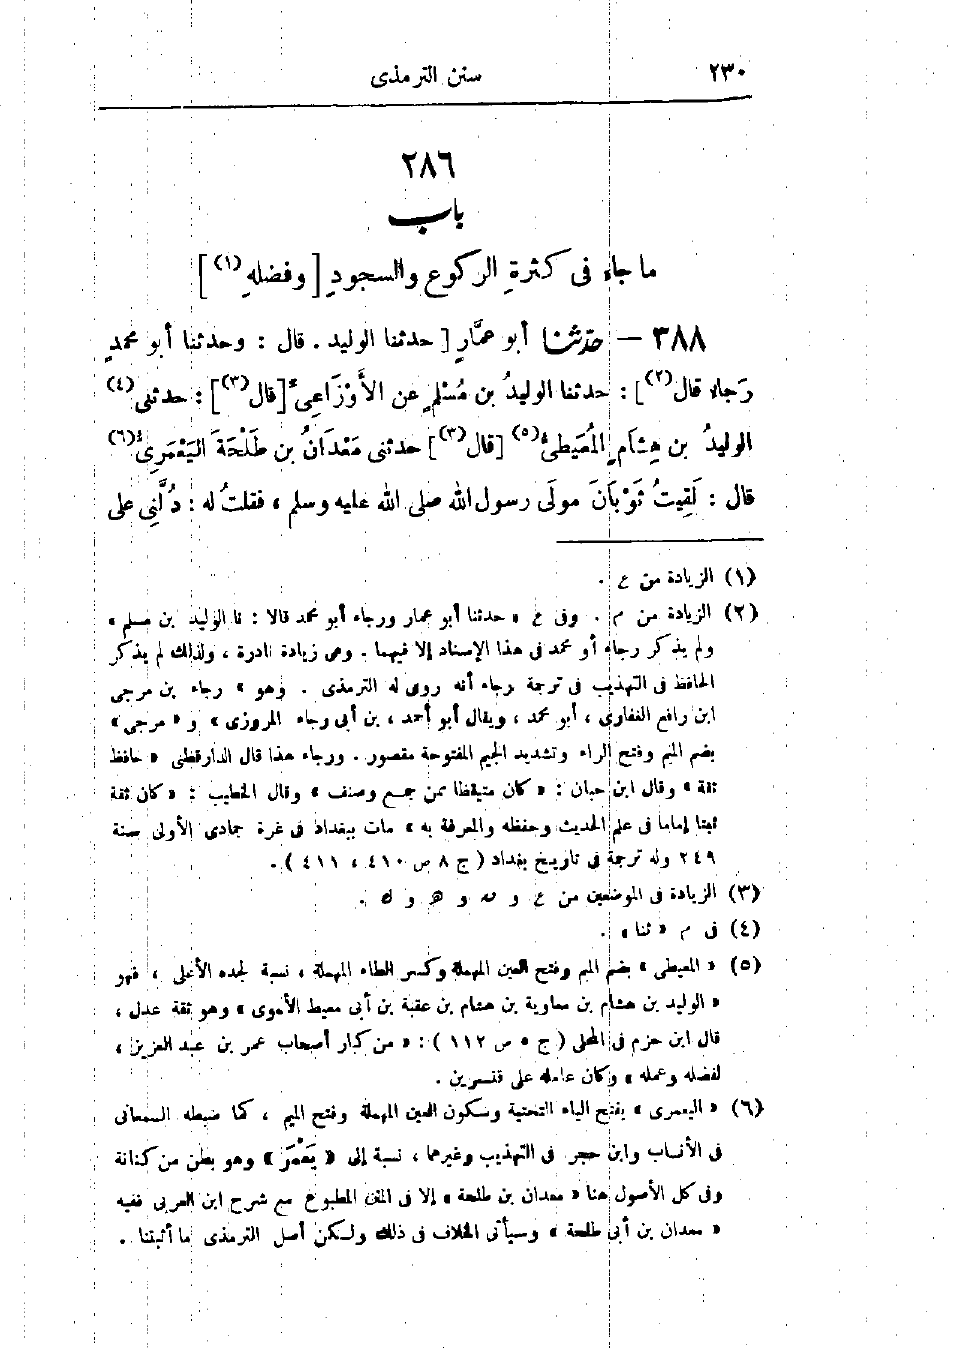 ٢٣٠ سنن الترمذى
٢٨٦
باب
ما جاء فى كثرةِ الركوع والسجودِ [ وفضلهِ (١) ]
٣٨٨ — حدّثنا أبو عمَّارٍ [ حدثنا الوليد . قال : وحدثنا أبو محمدٍ
رَجاء قال (٢) ] : حدثنا الوليدُ بن مُسْلمٍ عن الأَوْزَاعِىِّ [ قال (٣) ] : حدثنى (٤)
الوليدُ بن هِشَامٍ المُعَيطىُّ (٥) [ قال (٣) ] حدثنى مَعْدَانُ بن طَلْحَةَ اليَعْمَرِىُّ (٦)
قال : لَقِيتُ ثَوْبَانَ مولَى رسول الله صلى الله عليه وسلم ، فقلتُ له : دُلَّنِى على
(١) الزيادة من ع .
(٢) الزيادة من م . وفى ع « حدثنا أبو عمار ورجاء أبو محمد قالا : نا الوليد بن مسلم »
ولم يذكر رجاء أو محمد فى هذا الإسناد إلا فيهما . وهى زيادة نادرة ، ولذلك لم يذكر
الحافظ فى التهذيب فى ترجمة رجاء أنه روى له الترمذى . وهو « رجاء بن مرجى
ابن رافع الغفارى ، أبو محمد ، ويقال أبو أحمد ، بن أبى رجاء المروزى » و « مرجى »
بضم الميم وفتح الراء وتشديد الجيم المفتوحة مقصور . ورجاء هذا قال الدارقطنى « حافظ
ثقة » وقال ابن حبان : « كان متيقظا ممن جمع وصنف » وقال الخطيب : « كان ثقة
ثبتا إماما فى علم الحديث وحفظه والمعرفة به » مات ببغداد فى غرة جمادى الأولى سنة
٢٤٩ وله ترجمة فى تاريخ بغداد ( ج ٨ ص ٤١٠ ، ٤١١ ) .
(٣) الزيادة فى الموضعين من ع و ه و ك .
(٤) فى م « ثنا » .
(٥) « المعيطى » بضم الميم وفتح العين المهملة وكسر الطاء المهملة ، نسبة لجده الأعلى ، فهو
« الوليد بن هشام بن معاوية بن هشام بن عقبة بن أبى معيط الأموى » وهو ثقة عدل ،
قال ابن حزم فى المحلى ( ج ٥ ص ١١٢ ) : « من كبار أصحاب عمر بن عبد العزيز ،
لفضله وعمله » وكان عامله على قنسرين .
(٦) « اليعمرى » بفتح الياء التحتية وسكون العين المهملة وفتح الميم ، كما ضبطه السمعانى
فى الأنساب وابن حجر فى التهذيب وغيرهما ، نسبة إلى « يَعْمَرَ » وهو بطن من كنانة
وفى كل الأصول هنا « معدان بن طلحة » إلا فى المتن المطبوع مع شرح ابن العربى ففيه
« معدان بن أبى طلحة » وسيأتى الخلاف فى ذلك ولكن أصل الترمذى ما أثبتنا .